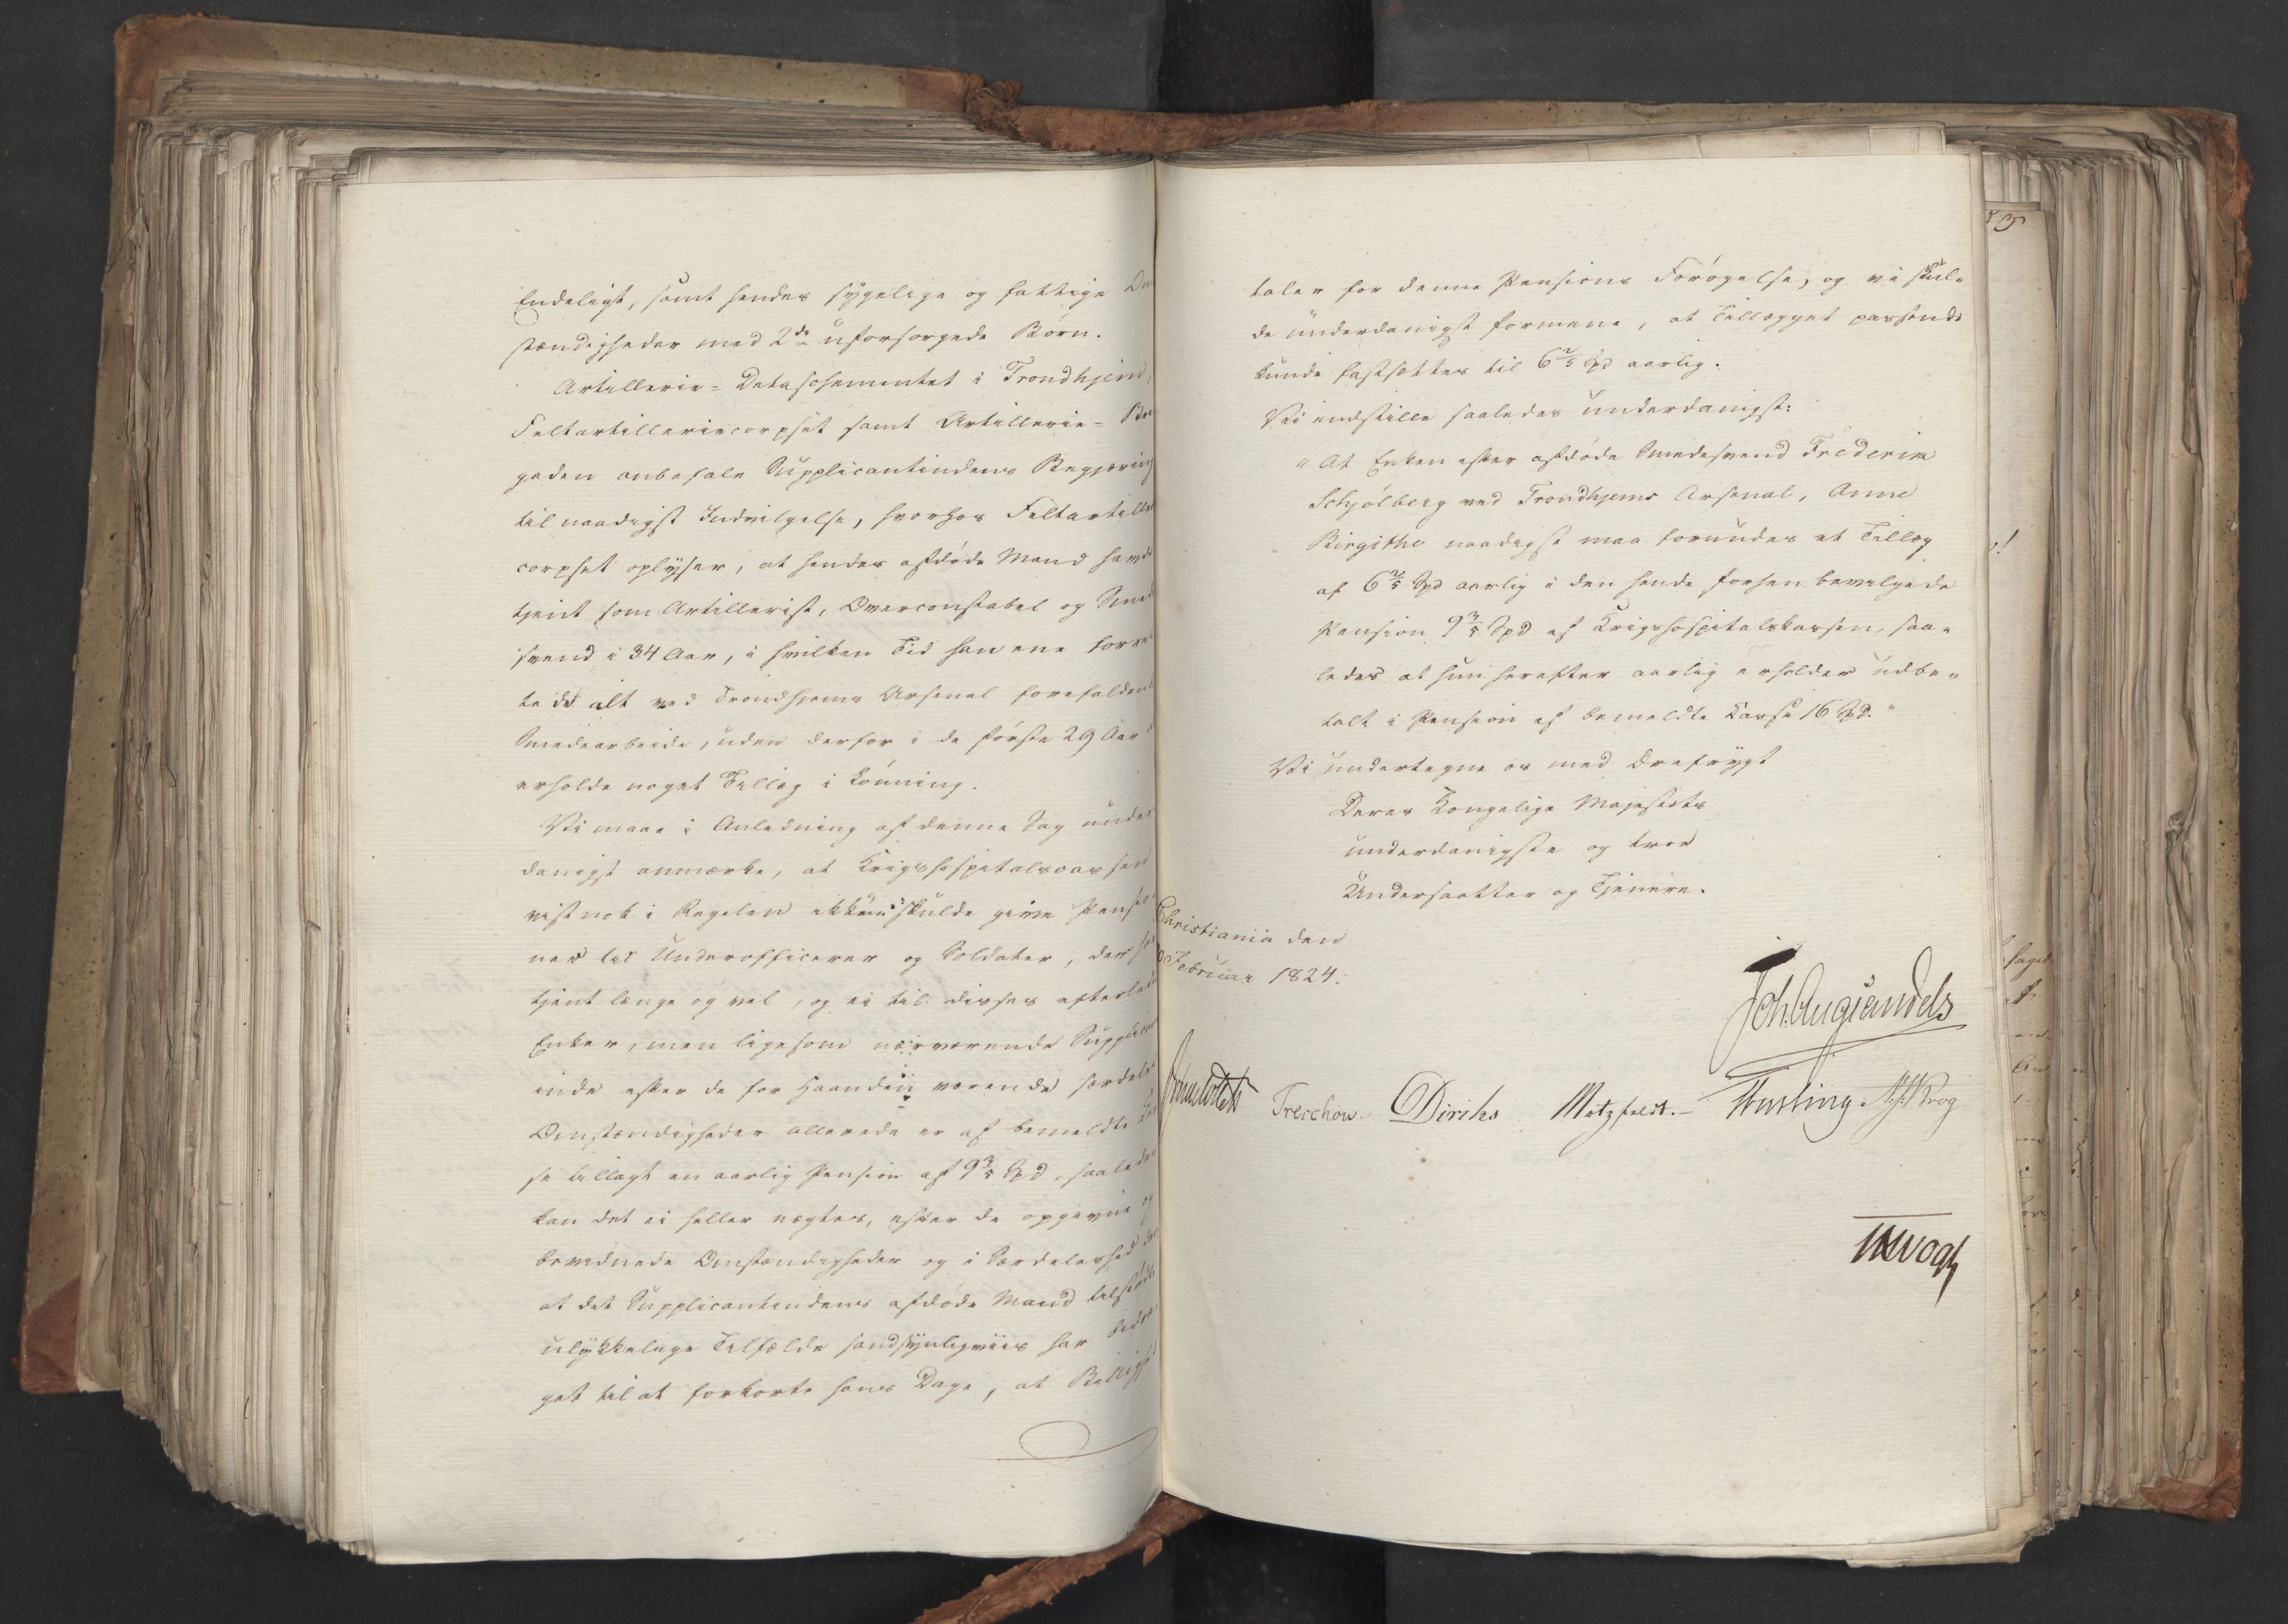 Endeligt, samt hendes sygelige og fattige Om
stændigheder med 2de uforsørgede Børn.
Artillerie-Detaschementet i Trondhjem,
Feltartilleriecorpset samt Artillerie-Bri
gaden anbefale Supplicantindens Begjæring
til naadigst Indvilgelse, hvorhos Feltartille
corpset oplyser, at hendes afdøde Mand havde
tjent som Artillerist, Overconstabel og Smed
svend i 34 Aar, i hvilken Tid han ene forret
tede alt ved Trondhjems Arsenal forefaldende
Smedearbeide, uden derfor i de første 29 Aar
erholde noget Tillæg i Lønning.
Vi maae i Anledning af denne Sag under
danigst anmærke, at Krigshospitalscassen
vistnok i Regelen ikkun skulde give Pensio
ner til Underofficerer og Soldater, der have
tjent længe og vel, og ei til disses efterladte
Enker, men ligesom nærværende Supplicant
inde efter de for Haanden værende særdeles
Omstændigheder allerede er af bemeldte Cas
se tillagt en aarlig Pension af 9 3/5 Spd, saaledes
kan det ei heller nægtes, efter de opgivne og
bevidnede Omstændigheder og i Særdeleshed der
at det Supplicantindens afdøde Mand tilstødte
ulykkelige Tilfælde sandsynligviis har bidra
get til at forkorte hans Dage, at Billighed
taler for denne Pensions Forøgelse; og vi skul-
de underdanigst formene, at Tillægget passende
kunde fastsættes til 6 2/5 Spd aarlig.
Vi indstille saaledes underdanigst:
"At Enken efter afdøde Smedesvend Frederik
Schjølberg ved Trondhjems Arsenal, Anne
Birgithe naadigst maa forundes et Tillæg
af 6 2/5 Spd aarlig i den hende forhen bevilgede
Pension 9 3/5 Spd af Krigshospitalskassen, saa-
ledes at hun herefter aarlig erholder udbe-
talt i Pension af bemeldte Casse 16 Spd."
Vi undertegne os med Ærefrygt
Deres Kongelige Majestæts
underdanigste og troe
Undersaatter og Tjenere.
Christiania den
Februar 1824.
Joh. Aug. Sandels
Sommerhielm Treschow. Diriks Motzfeldt.- Fasting Krog
Vogt